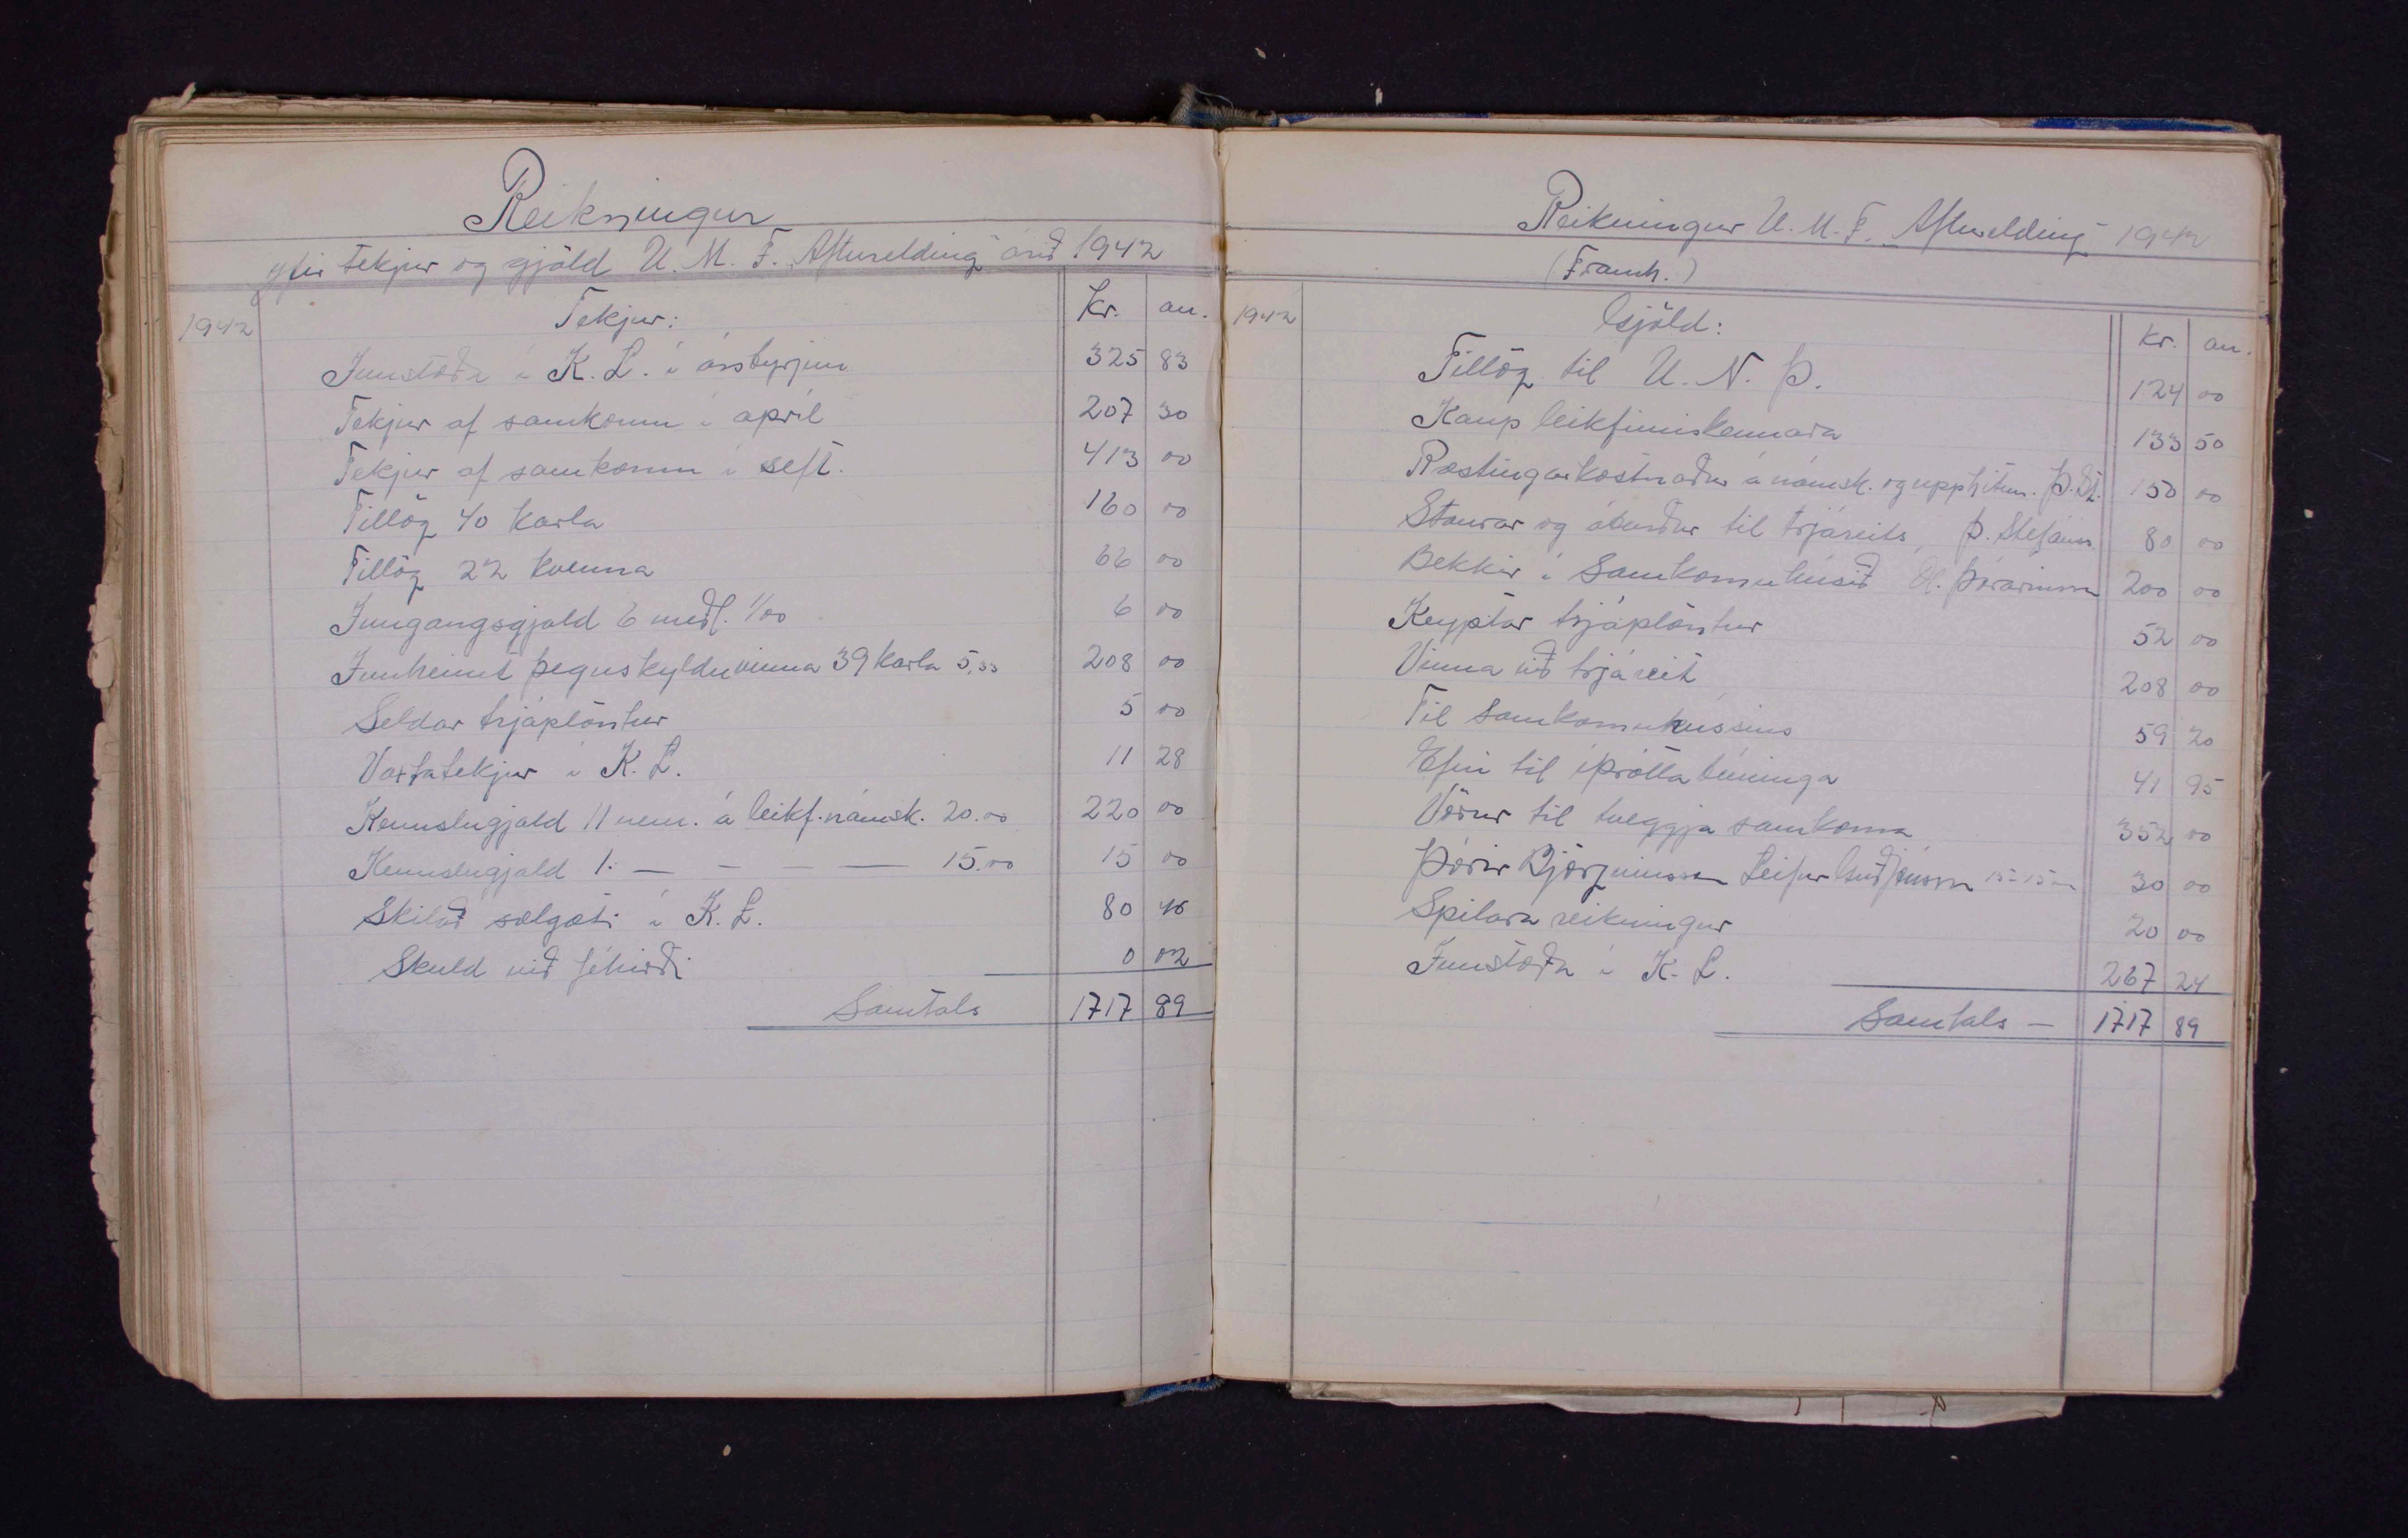 Reikningur
yfir tekjur og gjöld U. M. F. „Afturelding" árið 1942
1942 Tekjur: Kr. au.
Innstæða í K. L. í ársbyrjun 325 83
Tekjur af samkomu í apríl 207 30
Tekjur af samkomu í sept. 413 00
Tillög 40 karla 160 00
Tillög 22 kvenna 66 00
Inngangsgjald 6 meðl. 1/00 6 00
Innheimt þegnskylduvinna 39 karla 5.33 208 00
Seldar trjáplöntur 5 00
Vaxtatekjur í K. L. 11 28
Kennslugjald 11 nem. á leikf. námsk. 20.00 220 00
Kennslugjald 1. — — — — 15.00 15 00
Skilað sælgæti í K. L. 80 46
Skuld við féhirði 0 02
Samtals 1717 89
Reikningur U. M. F. „Afturelding" 1942
(Framh.)
1942 Gjöld: Kr. au.
Tillög til U. N. Þ. 124 00
Kaup leikfimiskennara 133 50
Ræstingarkostnaður á námsk. og upphitun. Þ. St. 150 00
Staurar og áburður til trjáreits, Þ. Stefánss. 80 00
Bekkir í Samkomuhúsið Ól. Þórarinsson 200 00
Keyptar trjáplöntur 52 00
Vinna við trjáreit 208 00
Til samkomuhússins 59 20
Efni til íþróttabúninga 41 95
Vörur til tveggja samkoma 352 00
Þórir Björgvinsson Leifur Guðjónsson 15- 15- 30 00
Spilara reikningur 20 00
Innstæða í K. L. 267 24
Samtals — 1717 89